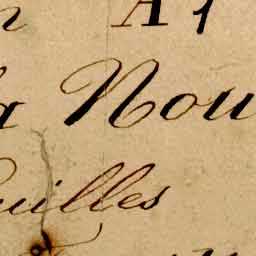 n A 1
la Nou
uilles